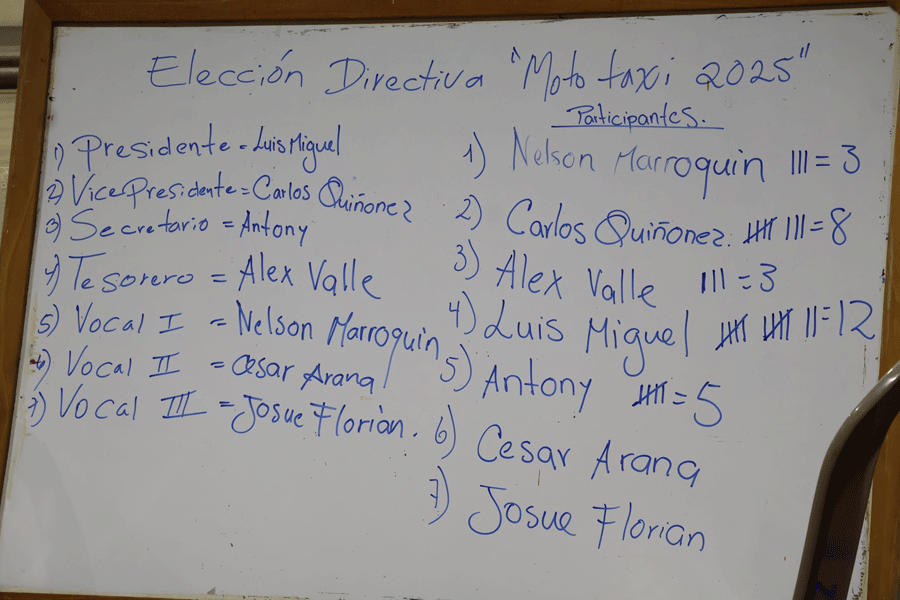 Elección Directiva "Moto taxi 2025"
1) Presidente = Luis Miguel
2) Vice Presidente = Carlos Quiñonez
3) Secretario = Antony
4) Tesorero = Alex Valle
5) Vocal I = Nelson Marroquin
6) Vocal II = Cesar Arana
7) Vocal III = Josue Florian.
Participantes.
1) Nelson Marroquin III = 3
2) Carlos Quiñonez. IIII III = 8
3) Alex Valle III = 3
4) Luis Miguel IIII IIII II = 12
5) Antony IIII = 5
6) Cesar Arana
7) Josue Florian